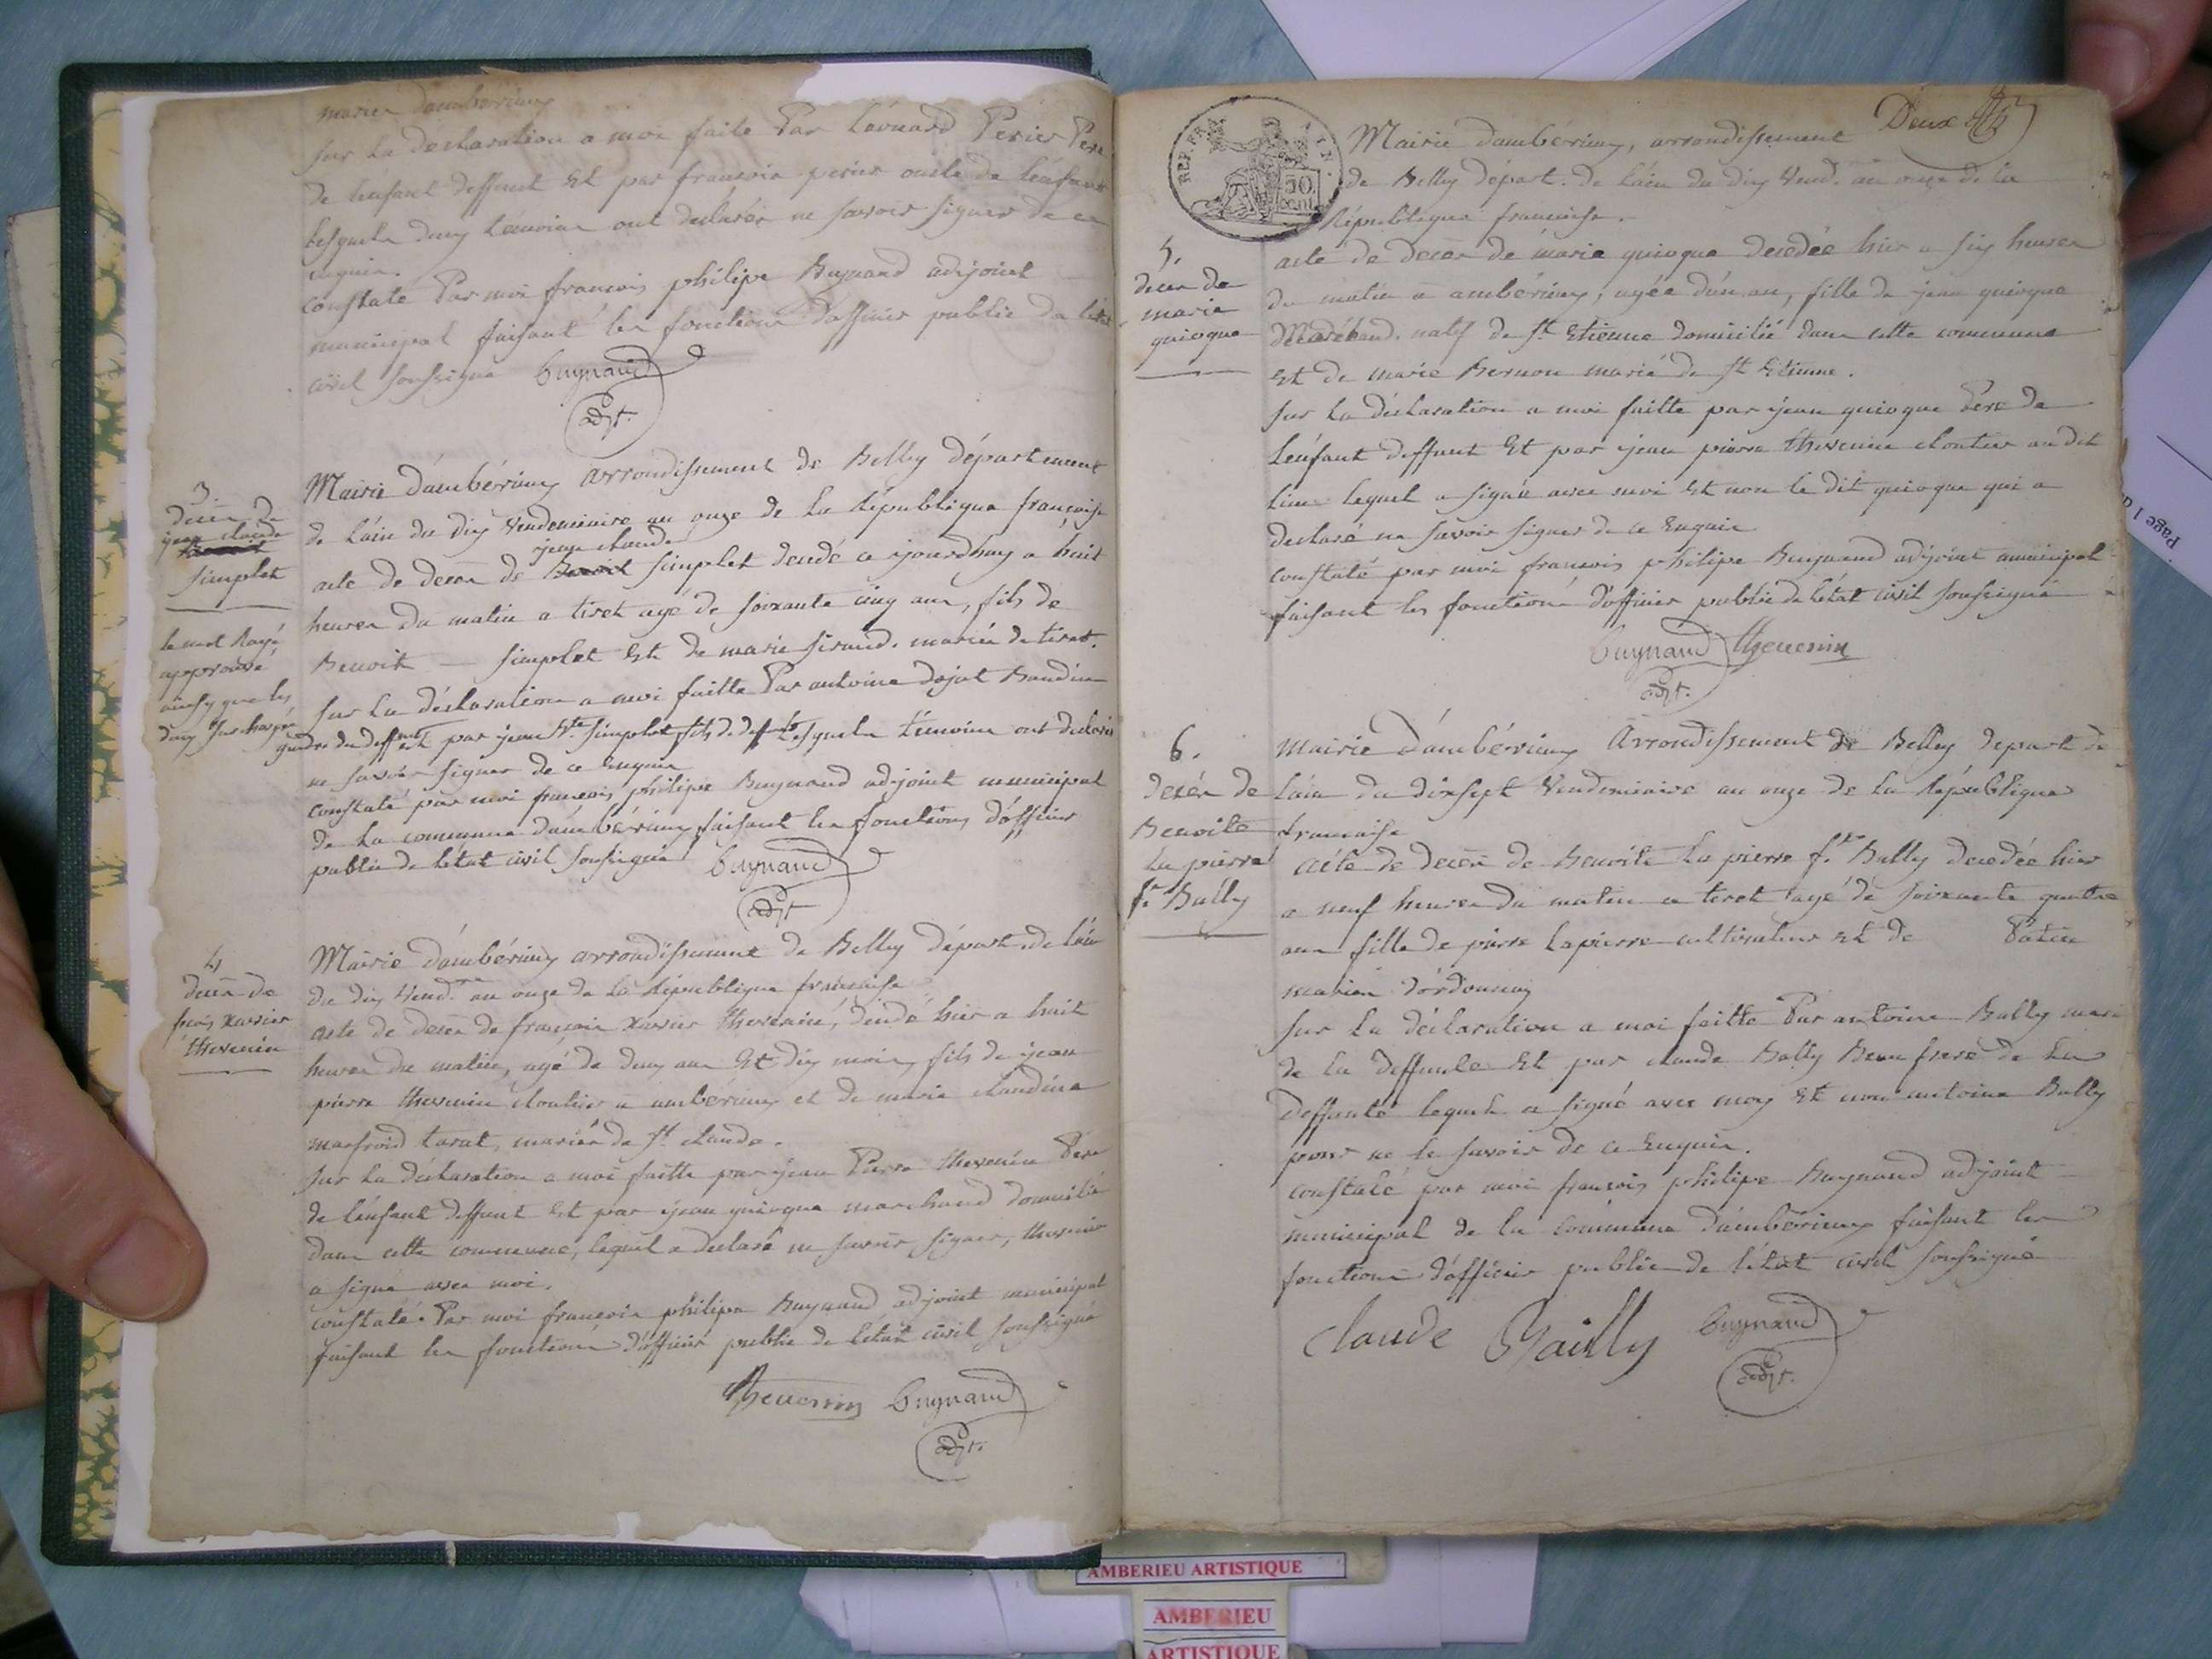 mariés d'ambérieux
sur la déclaration a moi faite Par Léonard Perier Pere
de l'enfant deffunt Et par francois perier oncle de l'enfant
lesquels deux témoins ont declarés ne savoir signer de ce
enquis.
constaté Par moi francois philipe Buynand adjoint
municipal faisant les fonctions d'officier public de l'état
civil soussigné Buynand
adjt.
3
décès de
jean claude
simplet
le mot Rayé
approuvé
ainsy que les
deux surchargés
Mairie d'ambérieux arrondissement de Belley département
de l'ain du dix vendemiaire an onze de la République francaise
jean claude
acte de décès de Benoit simplet décédé ce jourdhuy a huit
heures du matin a tiret agé de soixante cinq ans, fils de
Benoit — simplet Et de marie sirand. mariés de tiret.
sur la déclaration a moi faitte Par antoine dojat Baudin
gendre du deffunt Et par jean Bte simplet fils d. deft lesquels témoins ont declarés
ne savoir signer de ce Enquis
constaté par moi francois philipe Buynand adjoint municipal
de la commune d'ambérieux faisant les fonctions d'officier
public de l'état civil soussigné Buynand
adjt
4
décès de
frcois xavier
thevenin
Mairie d'ambérieux arrondissement de Belley départ. de l'ain
du dix Vend.re an onze de la République francaise
acte de décès de francois xavier thevenin, décédé hier a huit
heures du matin, agé de deux ans Et dix mois, fils de jean
pierre thevenin cloutier a ambérieux et de marie claudine
manfroid tarat, mariés de St. claude.
sur la déclaration a moi faitte par jean Pierre thevenin Pere
de l'enfant deffunt Et par jean quioque marchand domicilié
dans cette commune, lequel a declaré ne savoir signer, thevenin
a signé avec moi.
constaté. Par moi francois philipe Buynand adjoint municipal
faisant les fonctions d'officier public de l'état civil soussigné
thevenin Buynand
adjt.
Deux
REP. FRA.
50
cent
Mairie d'ambérieux, arrondissement
de Belley départ. de l'ain du dix Vend. an onze de la
République francaise.
5.
décès de
marie
quioque
acte de décès de marie quioque decedée hier a six heures
du matin a ambérieux, agée d'un an, fille de jean quioque
Marchand. natif de St. Etienne domicilié dans cette commune
Et de marie Bernon mariés de St Etienne.
sur la déclaration a moi faitte par jean quioque Pere de
l'enfant deffunt Et par jean pierre thevenin cloutier au dit
lieu lequel a signé avec moi Et non le dit quioque qui a
declaré ne savoir signer de ce Enquis
constaté par moi francois philipe Buynand adjoint municipal
faisant les fonctions d'officier public de l'état civil soussigné
Buynand thevenin
adjt.
6.
décès de
Benoite
La pierre
fe. Bailly
Mairie d'ambérieux Arrondissement de Belley depart de
l'ain du dixsept Vendemiaire an onze de la République
francaise
acte de décès de Benoite La pierre fe. Bailly decedée hier
a neuf heures du matin a tiret agé de soixante quatre
ans fille de pierre Lapierre cultivateur Et de Patin
mariés d'ordonnaz
sur la déclaration a moi faitte Par antoine Bailly mari
de la deffunte Et par claude Bailly Beau frere de la
deffunte lequel a signé avec moy Et non antoine Bailly
pour ne le savoir de ce Enquis.
constaté par moi francois philipe Buynand adjoint
municipal de la commune d'ambérieux faisant les
fonctions d'officier public de l'état civil soussigné
claude Bailly Buynand
adjt.
Page 1 d
AMBERIEU ARTISTIQUE
AMBERIEU
ARTISTIQUE